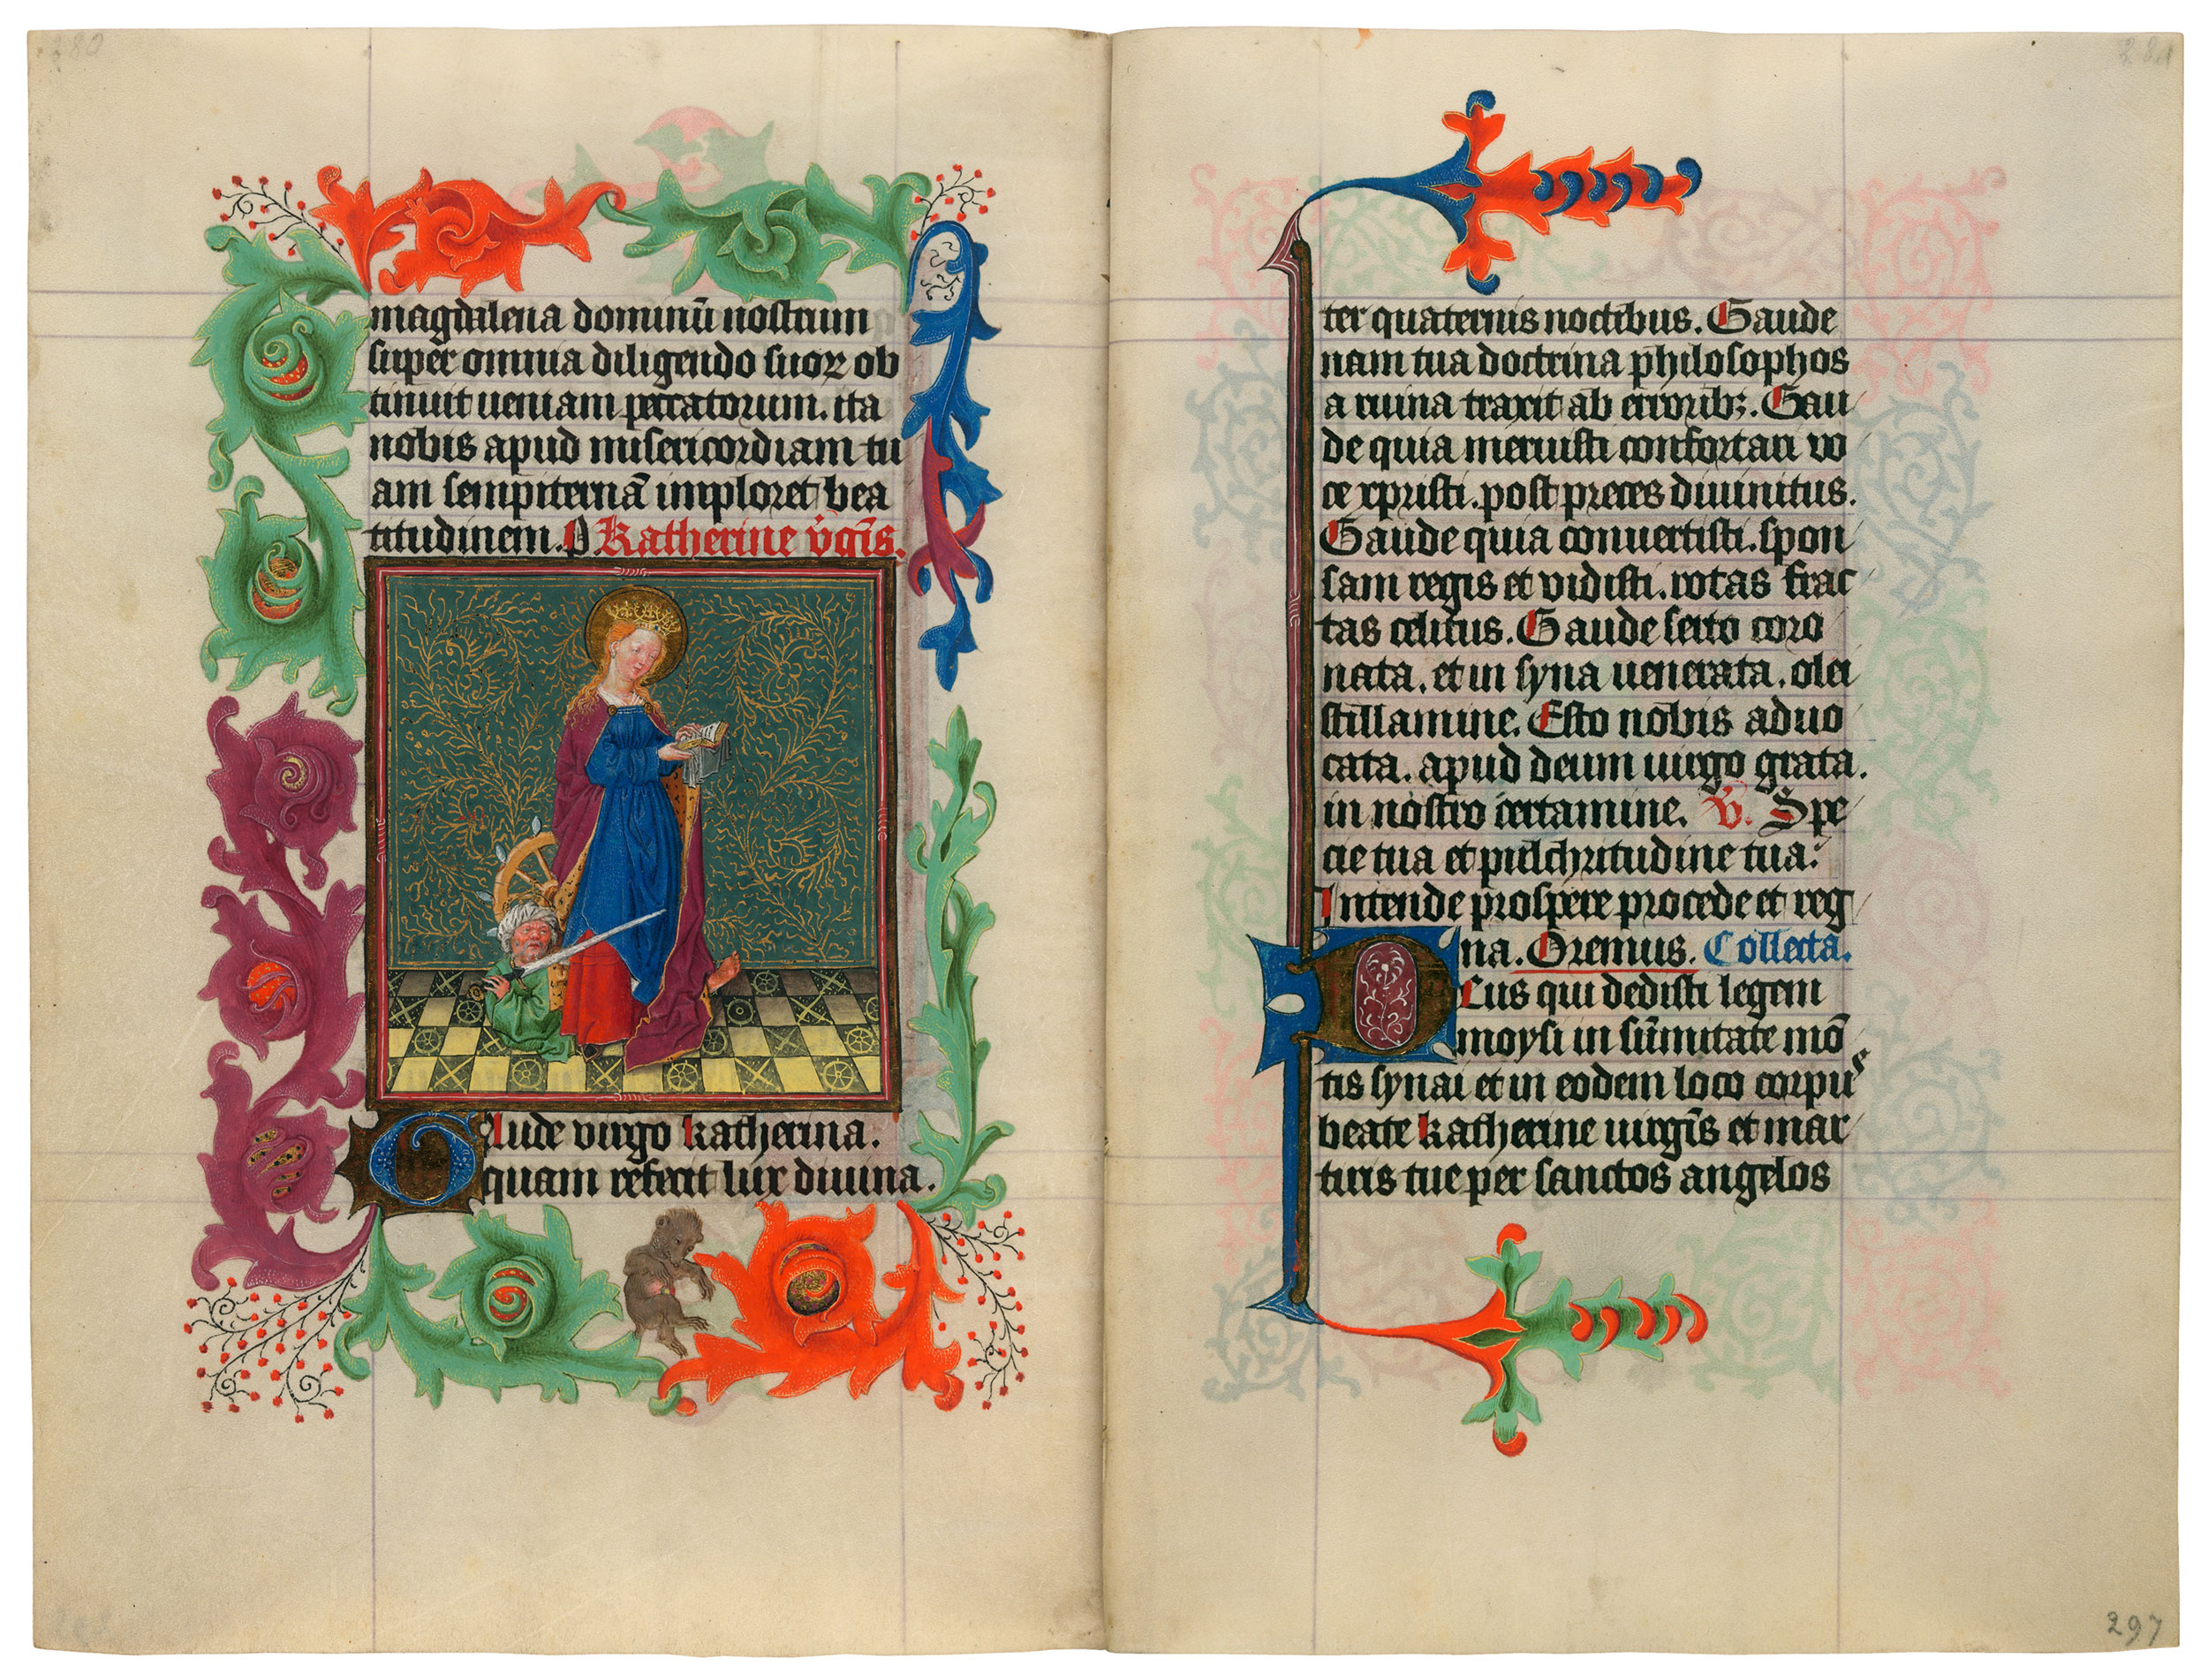 280
magdalena dominū nostrum
super omnia diligendo suoꝝ ob
tinuit ueniam peccatorum. ita
nobis apud misericordiam tu
am sempiternā imploret bea
titudinem. Katherine v̄gīs.
Gaude virgo katherina.
quam refecit lux diuina.
281
ter quaternis noctibus. Gaude
nam tua doctrina philosophos
a ruina traxit ab erroribꝫ. Gau
de quia meruisti confortari vo
ce xpristi. post preces diuinitus.
Gaude quia conuertisti. spon
sam regis et vidisti. rotas frac
tas celitus. Gaude serto coro
nata. et in syna uenerata. olei
stillamine. Esto nobis aduo
cata. apud deum uirgo grata.
in nostro certamine. V̄. Spe
cie tua et pulchritudine tua.
Intende prospere procede et reg
na. Oremus. Collecta.
Deus qui dedisti legem
moysi in sūmitate mō
tis synai et in eodem loco corpus
beate katherine uirgīs et mar
tiris tue per sanctos angelos
297